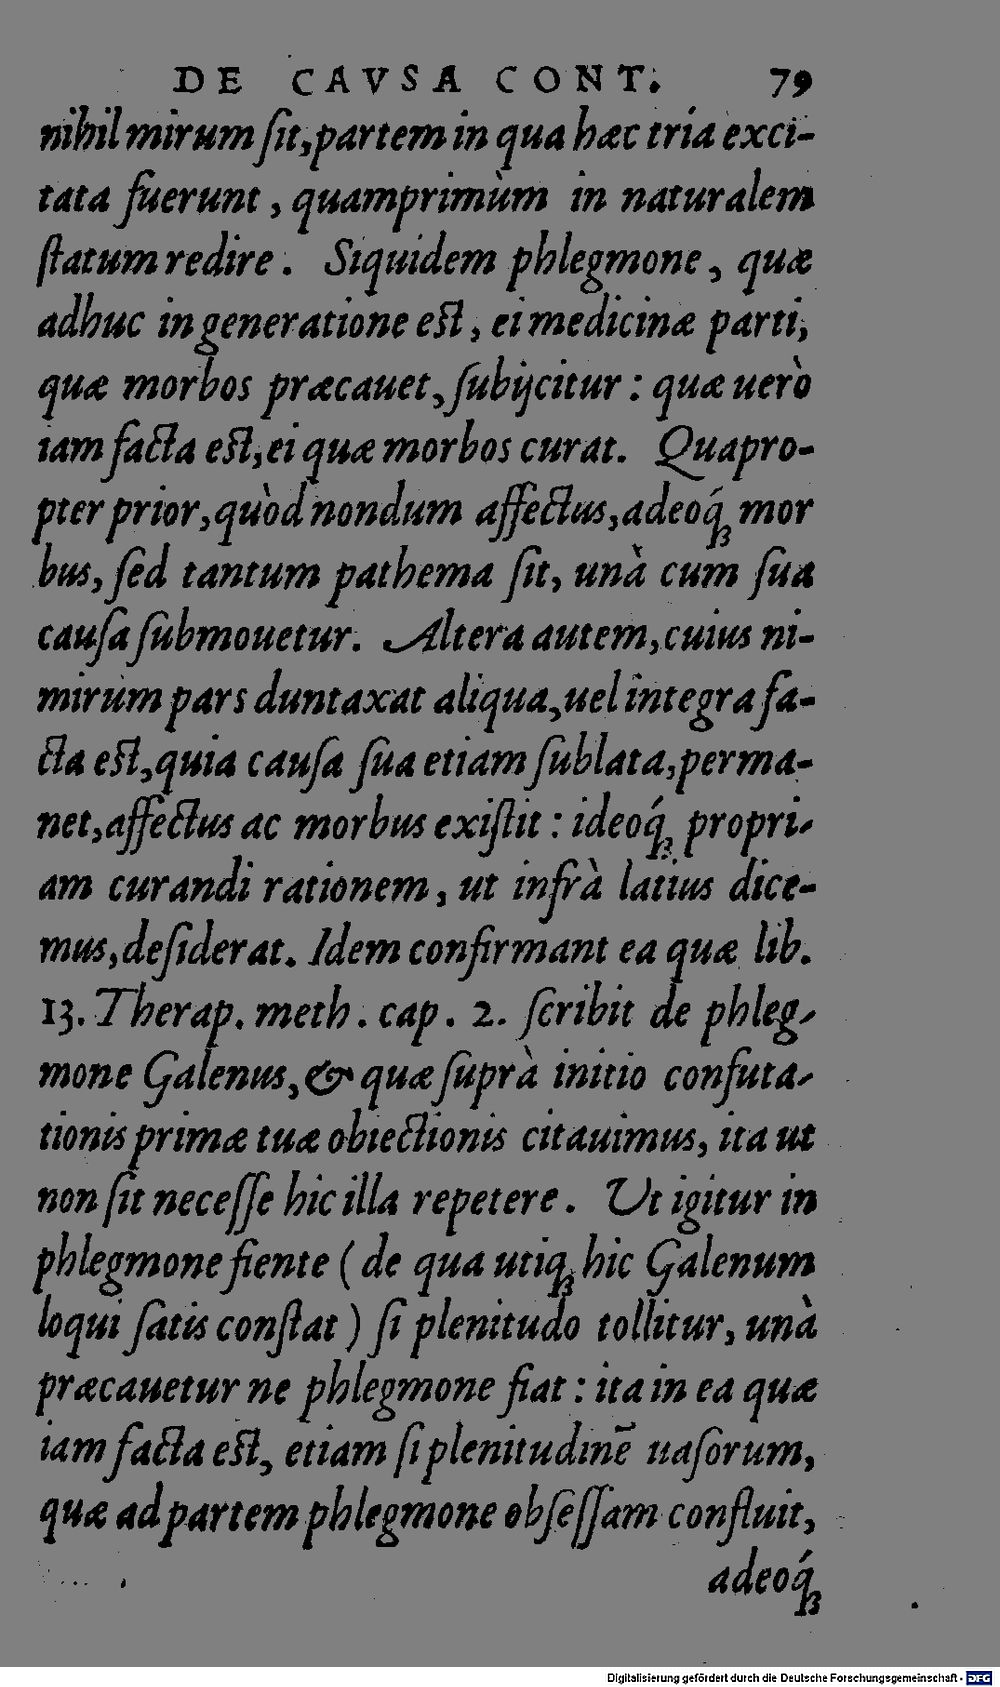 DE CAVSA CONT. 79
nihil mirum ſit, partem in qua hæc tria exci-
tata fuerunt, quamprimùm in naturalem
ſtatum redire. Siquidem phlegmone, quæ
adhuc in generatione eſt, ei medicinæ parti,
quæ morbos præcauet, ſubijcitur: quæ uerò
iam facta eſt, ei quæ morbos curat. Quapro-
pter prior, quòd nondum affectus, adeoq́ꝫ mor
bus, ſed tantum pathema ſit, unà cum ſua
cauſa ſubmouetur. Altera autem, cuius ni-
mirum pars duntaxat aliqua, uel integra fa-
cta eſt, quia cauſa ſua etiam ſublata, perma-
net, affectus ac morbus exiſtit: ideoq́ꝫ propri-
am curandi rationem, ut infrà latius dice-
mus, deſiderat. Idem confirmant ea quæ lib.
13. Therap. meth. cap. 2. ſcribit de phleg-
mone Galenus, & quæ ſuprà initio confuta-
tionis primæ tuæ obiectionis citauimus, ita ut
non ſit neceſſe hic illa repetere. Ut igitur in
phlegmone fiente (de qua utiqꝫ hic Galenum
loqui ſatis conſtat) ſi plenitudo tollitur, unà
præcauetur ne phlegmone fiat: ita in ea quæ
iam facta eſt, etiam ſi plenitudinē uaſorum,
quæ ad partem phlegmone obſeſſam confluit,
adeoq́ꝫ
Digitalisierung gefördert durch die Deutsche Forschungsgemeinschaft - DFG